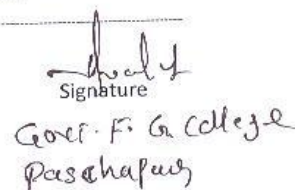 Signature
Govt. F. G College
Paschapur